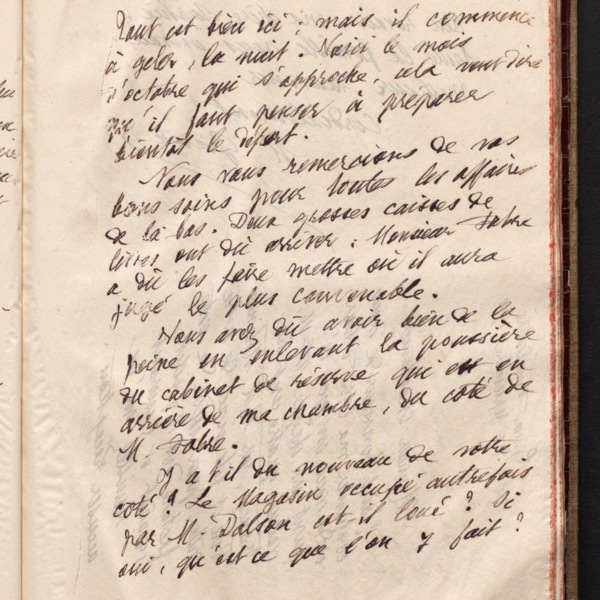 Tout est bien ici ; mais il commence
à geler, la nuit. Voici le mois
d'octobre qui s'approche, cela veut dire
qu'il faut penser à préparer
bientôt le départ.
Nous vous remercions de vos
bons soins pour toutes les affaires
de là bas. Deux grosses caisses de
livres ont dû arriver : Monsieur Fabre
a dû les faire mettre où il aura
jugé le plus convenable.
Vous avez dû avoir bien de la
peine en enlevant la poussière
du cabinet de réserve qui est en
arrière de ma chambre, du côté de
M. Fabre.
Y a t'il du nouveau de votre
côté ? Le Magasin occupé autrefois
par M. Dalson est-il loué ? Si
oui, qu'est ce que l'on y fait ?